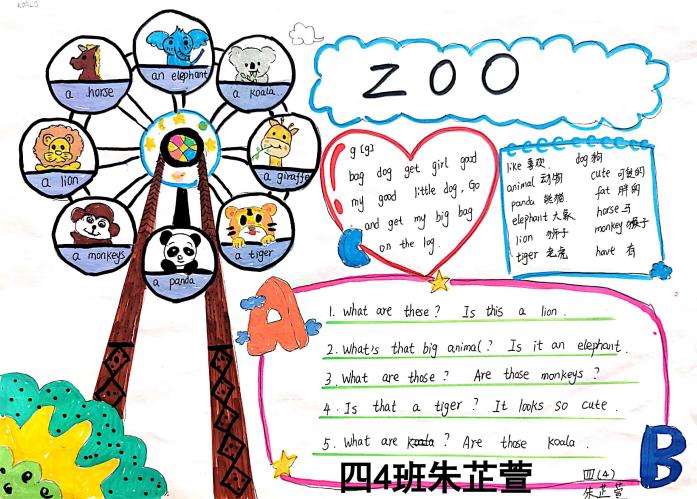 ZOO
a horse
an elephant
a koala
a lion
a giraffe
a monkeys
a panda
a tiger
g [g]
bag dog get girl good
my good little dog, Go
and get my big bag
on the log.
like 喜欢
dog 狗
animal 动物
cute 可爱的
panda 熊猫
fat 胖的
elephant 大象
horse 马
lion 狮子
monkey 猴子
tiger 老虎
have 有
A
1. What are these? Is this a lion.
2. What's that big animal? Is it an elephant.
3. What are those? Are those monkeys?
4. Is that a tiger? It looks so cute.
5. What are koala? Are those koala.
B
四(4)
朱芷萱
四4班朱芷萱